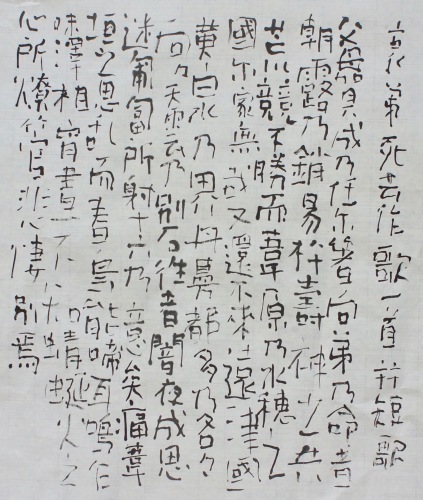 哀弟死去作歌一首并短歌
父母賀成乃任尓箸向弟乃命者
朝露乃銷易杵壽神之共
荒競不勝而葦原乃水穂之
國尓家無哉又還不来遠津國
黄泉乃界丹蔓都多乃各々
向々天雲乃別石徃者闇夜成思
迷匍匐所射十六乃意矣痛葦
垣之思乱而春鳥能啼耳鳴乍
味澤相宵晝不知蜻蜒火之
心所燎管悲悽別焉